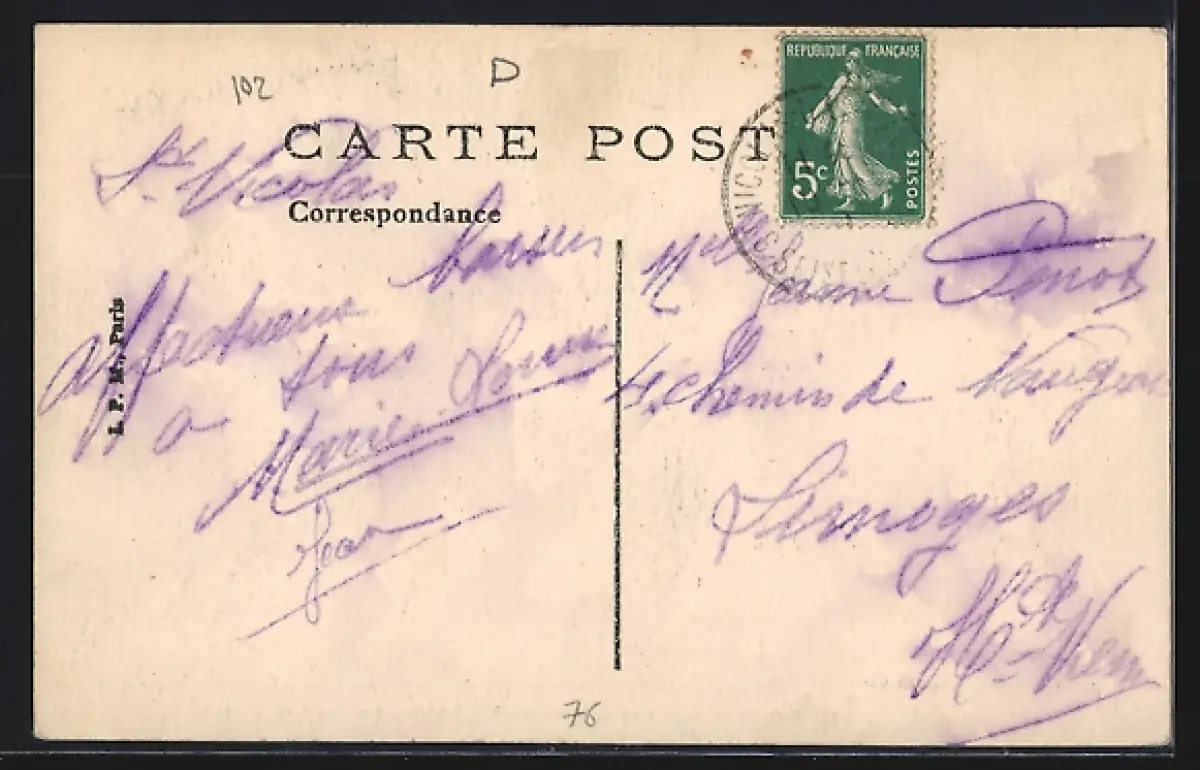 102
D
CARTE POST
Correspondance
St Nicolas
affectueux baisers
à tous
Marie Louise
Jean
L. P. M., Paris
REPUBLIQUE FRANÇAISE
5c
POSTES
Melle Jeanne
4 chemin de
Limoges
Hte Vienne
76